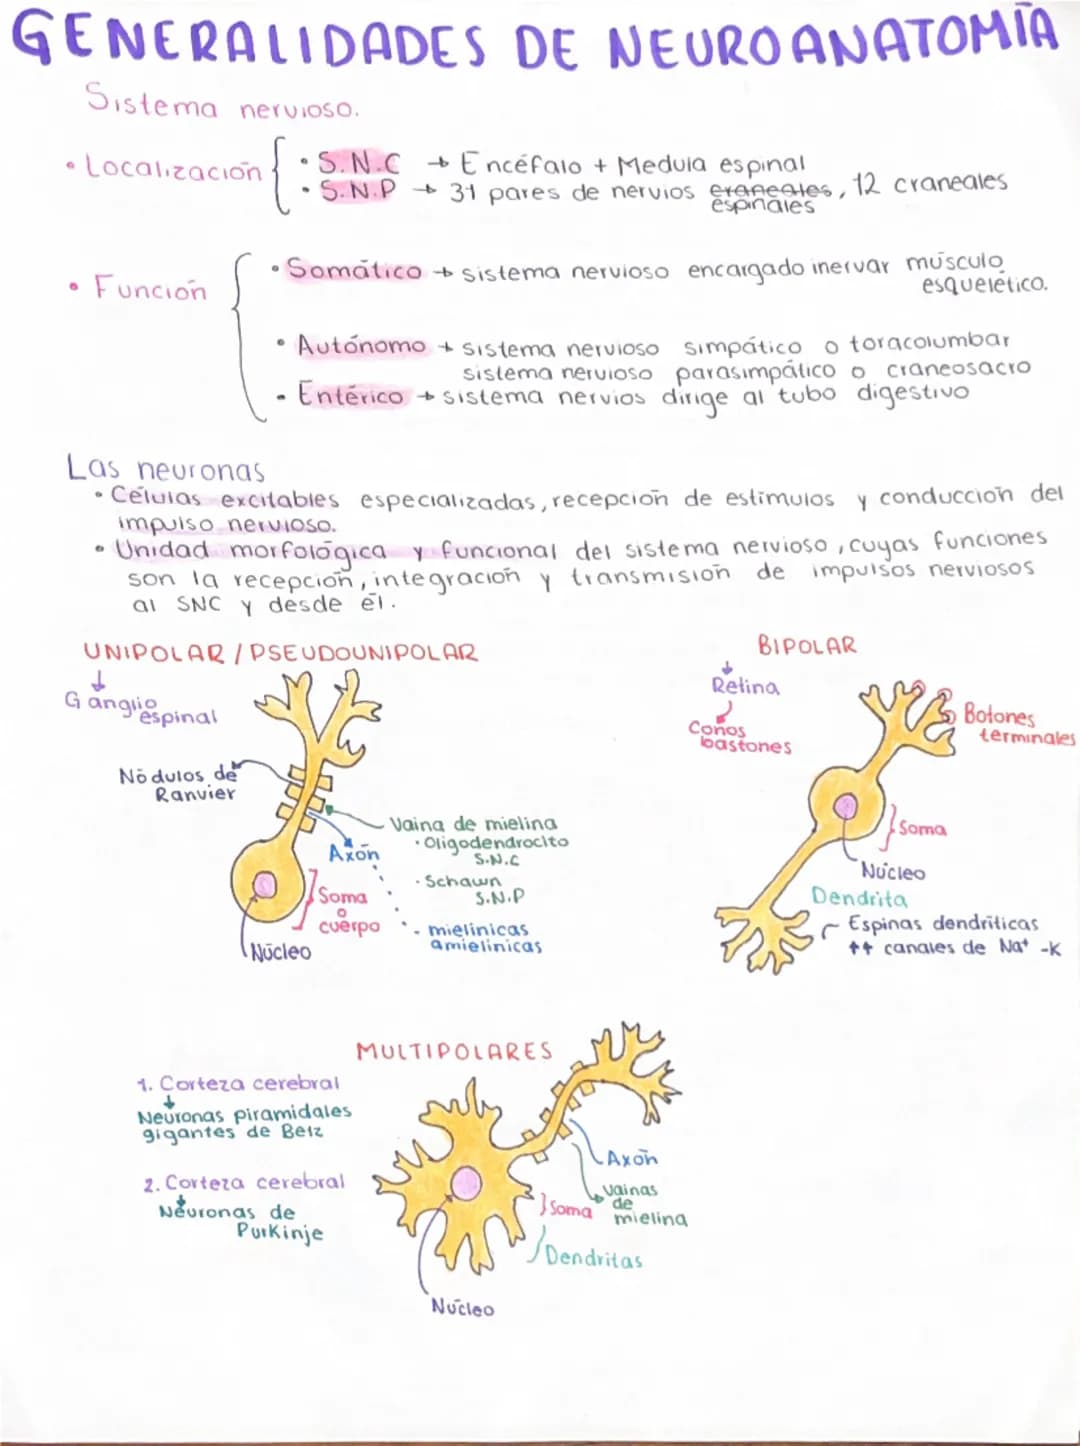 GENERALIDADES DE NEUROANATOMÍA
Sistema nervioso.
• Localización
• S.N.C → Encéfalo + Medula espinal
• S.N.P → 31 pares de nervios craneales, 12 craneales
espinales
• Función
• Somático → sistema nervioso encargado inervar músculo
esquelético.
• Autónomo → sistema nervioso simpático o toracolumbar
sistema nervioso parasimpático o craneosacro
• Entérico → sistema nervios dirige al tubo digestivo
Las neuronas
• Células excitables especializadas, recepción de estimulos y conducción del
impulso nervioso.
• Unidad morfológica y funcional del sistema nervioso, cuyas funciones
son la recepción, integración y transmisión de impulsos nerviosos
al SNC y desde él.
UNIPOLAR / PSEUDOUNIPOLAR
↓
Ganglio
espinal
Nódulos de
Ranvier
Vaina de mielina
· Oligodendrocito
S.N.C
· Schawn
S.N.P
Axón
· mielinicas
amielinicas
Soma
o
cuerpo
Núcleo
BIPOLAR
↓
Retina
Conos
bastones
Botones
terminales
Soma
Núcleo
Dendrita
Espinas dendríticas
↑↑ canales de Na⁺ -K
MULTIPOLARES
1. Corteza cerebral
↓
Neuronas piramidales
gigantes de Betz
2. Corteza cerebral
↓
Neuronas de
Purkinje
Axón
Vainas
de
mielina
Soma
Dendritas
Núcleo